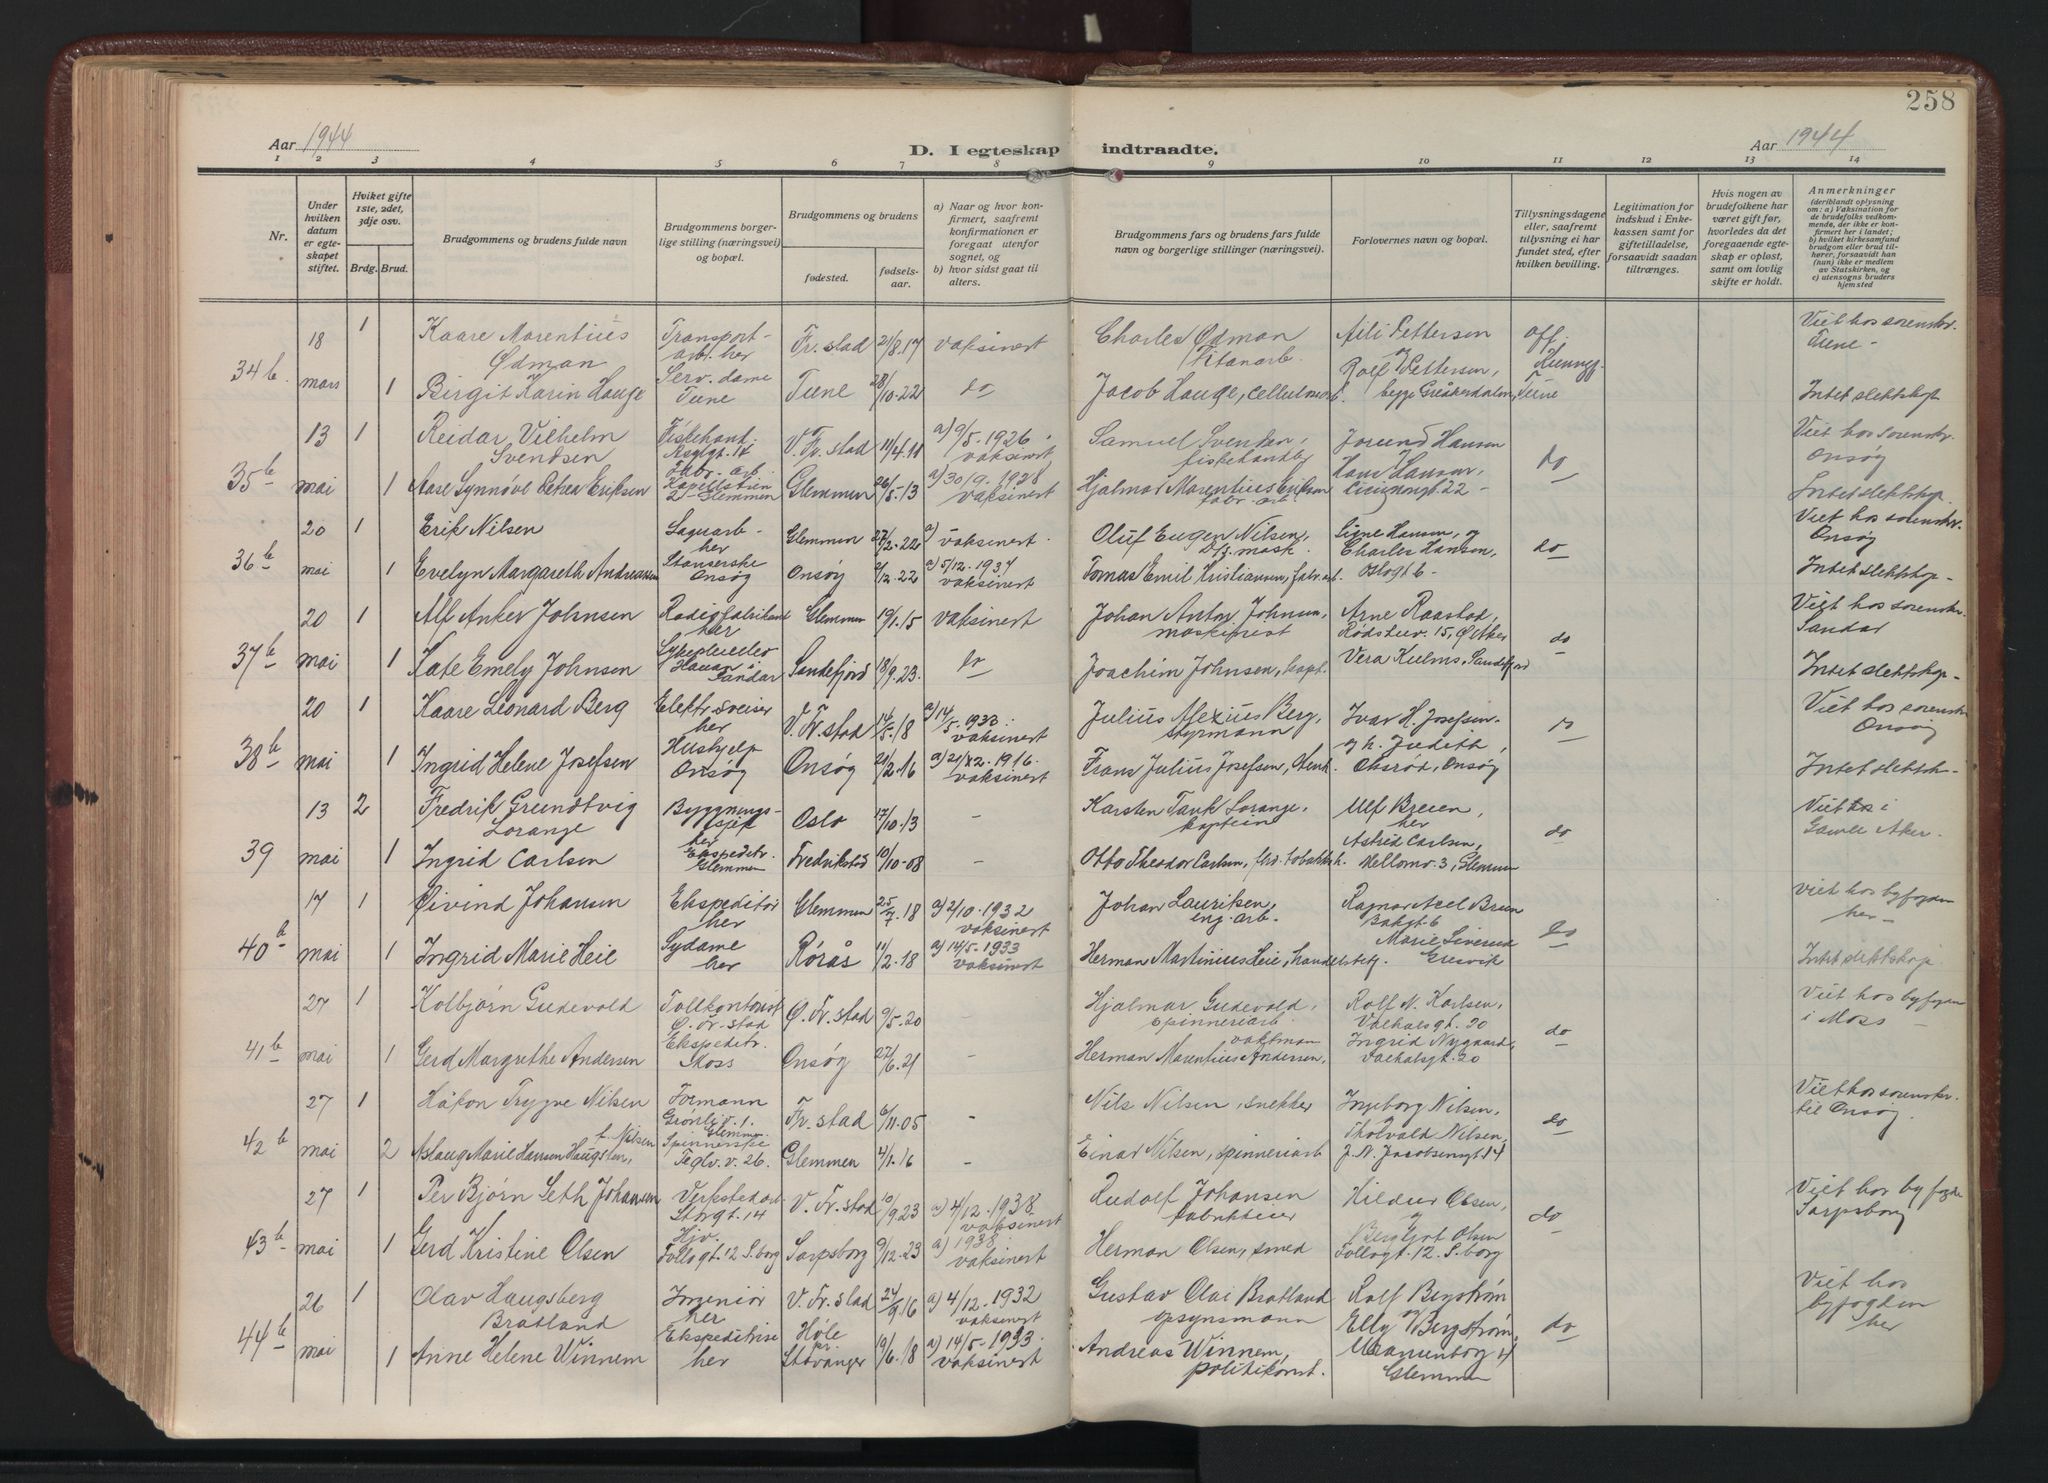 258
Aar 1944
D. I egteskap indtraadte.
Aar 1944
1 2 3 4 5 6 7 8 9 10 11 12 13 14
Nr.
Under hvilken datum er egteskapet stiftet.
Hvilket gifte 1ste, 2det, 3dje osv.
Brdg. Brud.
Brudgommens og brudens fulde navn
Brudgommens borgerlige stilling (næringsvei) og bopæl.
Brudgommens og brudens
fødested.
fødselsaar.
a) Naar og hvor konfirmert, saafremt konfirmationen er foregaat utenfor sognet, og
b) hvor sidst gaat til alters.
Brudgommens fars og brudens fars fulde navn og borgerlige stillinger (næringsvei).
Forlovernes navn og bopæl.
Tillysningsdagene eller, saafremt tillysning ei har fundet sted, efter hvilken bevilling.
Legitimation for indskud i Enkekassen samt for giftetilladelse, forsaavidt saadan tiltrænges.
Hvis nogen av brudefolkene har været gift før, hvorledes da det foregaaende egteskap er opløst, samt om lovlig skifte er holdt.
Anmerkninger
(deriblandt oplysning om: a) Vaksination for de brudefolks vedkommende, der ikke er konfirmert her i landet; b) hvilket kirkesamfund brudgom eller brud tilhører, forsaavidt han (hun) ikke er medlem av Statskirken, og c) utensogns bruders hjemsted
34 b. 18 mars
1 Kaare Marentius Ødman Transportarb. her Fr.stad 21/8.17 vaksinert Charles Ødman Titanarb. Aili Pettersen og off. Viet hos sorenskr. Tune -
1 Birgit Karin Hauge Serv. dame Tune Tune 28/10.22 do Jacob Hauge, cellulosearb. Rolf Pettersen, begge Greåkerdalen, Tune Intet slektskap
35 b 13 mai
1 Reidar Vilhelm Svendsen Fiskehand. Asylgt. 14 V. Fr.stad 11/4.11 a) 9/5.1926 vaksinert Samuel Svendsen, fiskehandler Hansen do Viet hos sorenskr. Onsøy
1 Aase Synnøve Petrea Eriksen Fabr. arb. Glemmen Glemmen 26/5.13 a) 30/9.1928 vaksinert Hjalmar Marentius Eriksen fabr. arb. Hans Hansen, 22 - Intet slektskap.
36 b 20 mai
1 Erik Nilsen Sagarb - her Glemmen 27/2.22 a) vaksinert Oluf Eugen Nilsen, mask. Signe Hansen, og do Viet hos sorenskr. Onsøy
1 Evelyn Margareth Andreassen Stanserske Onsøy Onsøy 2/12.22 a) 5/12.1937 vaksinert Tomas Emil Kristiansen, fabr. arb. Charles Hansen, Oslogt 6 - Intet slektskap -
37 b 20 mai
1 Alf Anker Johnsen Radiofabrikant her Glemmen 19/1.15 vaksinert Johan Anton Johnsen, maskinist Arne Raastad, Rødsteuv. 15, Ø. Aker do Viet hos sorenskr. Sandar
1 Kate Emely Johnsen Sykepleieske i Sandar Sandefjord 18/9.23. do Joachim Johnsen, kapt. Vera Kulms, Sandefjord Intet slektskap -
38 b 20 mai
1 Kaare Leonard Berg Elektr. sveiser her V. Fr.stad 14/5.18 a) 14/5.1933 vaksinert Julius Alexius Berg, styrmann Ivar H. Josefsen do Viet hos sorenskr. Onsøy
1 Ingrid Helene Josefsen Hushjelp Onsøy Onsøy 21/2.16 vaksinert Frans Julius Josefsen, stenh. og h. Judith, Oksrød, Onsøy Intet slektsk -
39 13 mai
2 Fredrik Grundtvig Lorange Byggningssjef her Oslo 17/10.13 - Karsten Tank Lorange, kaptein Ulf Breien, her do Viet i Gamle Aker -
1 Ingrid Carlsen Ekspeditr. Glemmen Fredrikstad 10/10-08 - Otto Theodor Carlsen, Astrid Carlsen, Mellomv. 3, Glemmen
40 b 17 mai
1 Øivind Johansen Ekspeditør her Glemmen 25/7.18 a) 2/10.1932 vaksinert Johan Lauritsen eng. arb. Ragnar Axel Bruun Bakgt 6 do Viet hos byfogden her -
1 Ingrid Marie Heie Sydame her Rørås 11/2.18 a) 14/5.1933 vaksinert Herman Martinius Heie, handelsbetj. Marie Siverud Gresvik Intet slektskap.
41 b 27 mai
1 Kolbjørn Gudevold Tollkontorist Ø. Fr.stad Ø. Fr.stad 9/5.20 - Hjalmar Gudevold, spinneriarb. Rolf N. Karlsen, Valhalsgt. 20 do Viet hos byfogden i Moss -
1 Gerd Margrethe Andersen Ekspeditr. Moss Onsøy 27/6.21 Herman Marentius Andersen, vaktman Ingrid Nygaard, Valhalsgt. 20
42 b 27 mai
1 Håkon Trygve Nilsen Formann Grønliv. 1. Glemmen Fr.stad 6/11.05 - Nils Nilsen, snekker Ingeborg Nilsen, do Viet hos sorenskr. til Onsøy.
2 Aslaug Marie Hansen Haugsten, f. Nilsen Spinnerske Teglv. v. 26. Glemmen 4/1.16 - Einar Nilsen, spinneriarb Tholvald Nilsen, J. N. Jacobsensgt 14
43 b 27 mai
1 Per Bjørn Seth Johansen Verkstedarb. Storgt. 14 V. Fr.stad 10/9.23 a) 4/12.1938 vaksinert Rudolf Johansen fabrikkeier Hildur Olsen, og do Viet hos byfogden Sarpsborg
1 Gerd Kristine Olsen Hjv. Follogt. 12 S.borg Sarpsborg 9/12.23 a) 1938 vaksinert Herman Olsen, smed Bergljot Olsen Follogt. 12. S.borg
44 b 26 mai
1 Olav Haugsberg Bratland Ingeniør her V. Fr.stad 24/9.16 a) 4/12.1932 vaksinert Gustav Olai Bratland opsynsmann Rolf Bergstrøm og do Viet hos byfogden her
1 Anne Helene Winnem Ekspeditrise her Høle pr. Stavanger 19/6.18 a) 14/5-1933. vaksinert Andreas Winnem, politikonst. Elly Bergstrøm, Glemmen